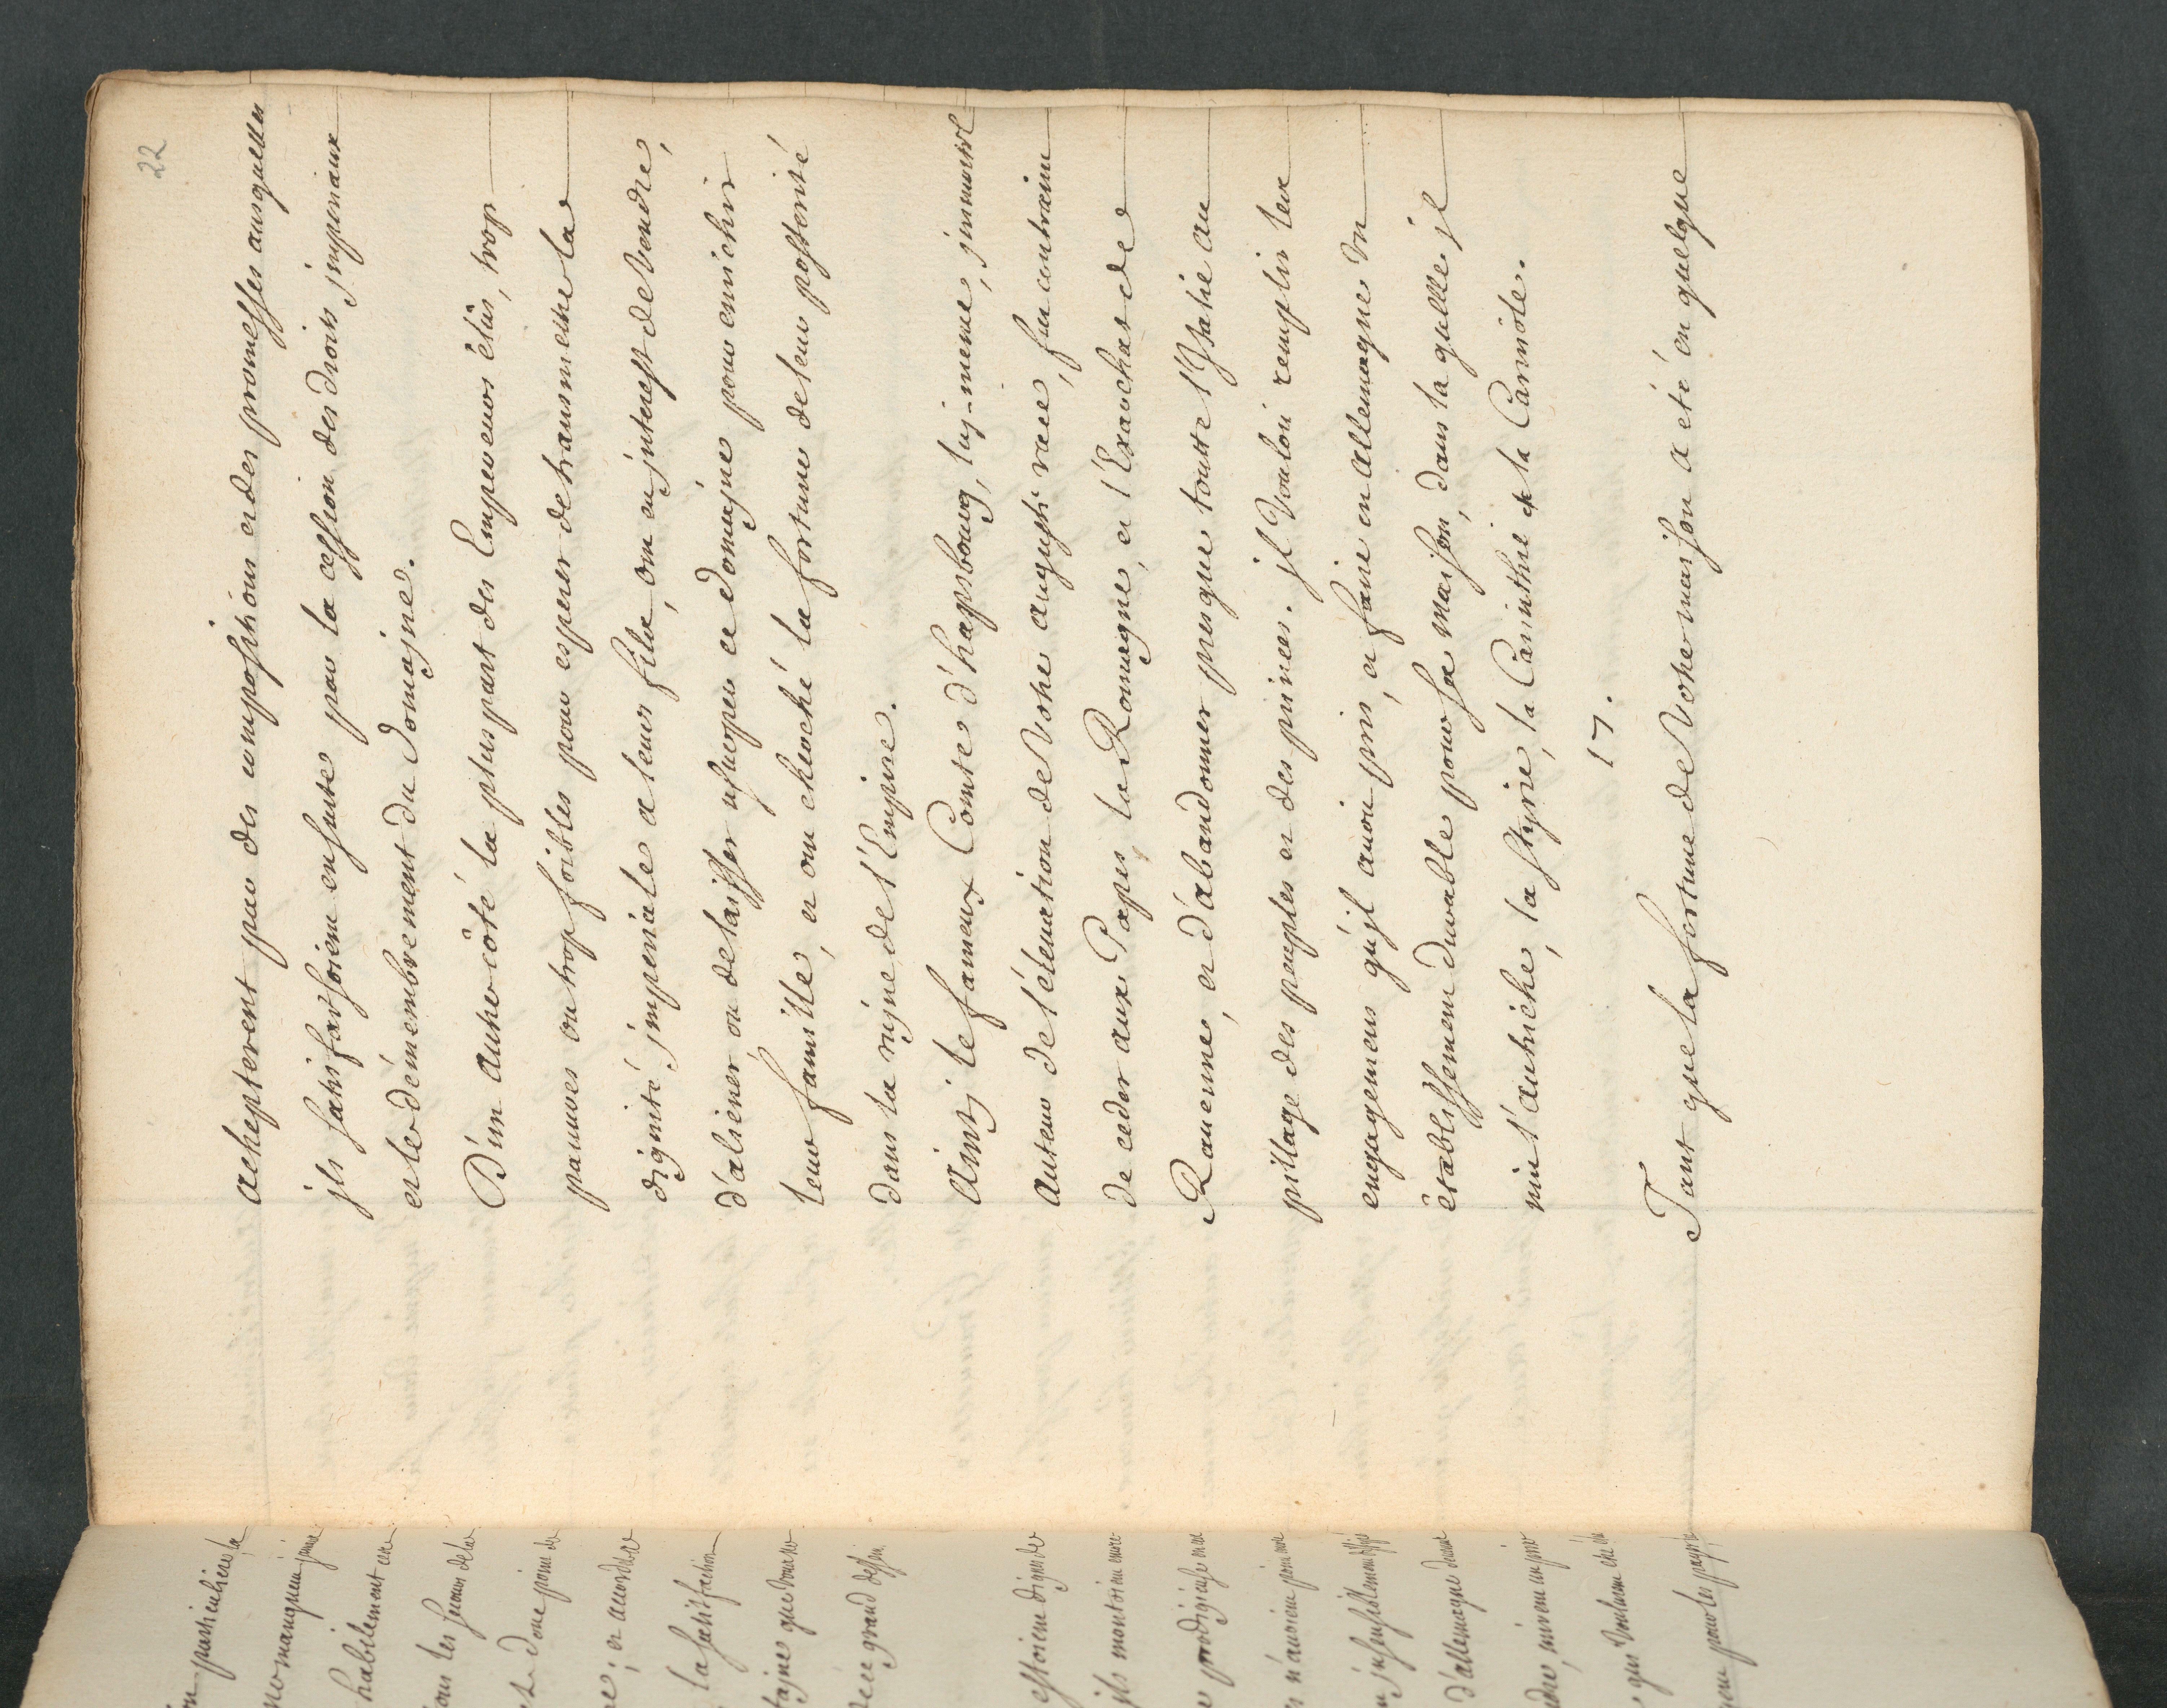 22
achepterent par des compositions et des promesses ausquelles
jls satisfaisoient ensuite par la cession des droits jmperiaux
et le démembrement du domajne.
D'un autre côté la plus part des Empereurs élûs, trop
pauvres ou trop foibles pour esperer de transmettre la
dignité jmperiale a leurs fils, ont eu jnterest de Vendre,
d'aliener, ou de laisser usurper ce domajne pour enrichir
leur famille, et ont cherché la fortune de leur posterité
dans la rüjne de l'Empire.
Ainsj le fameux Comte d'hapsbourg, luj-meme, jmmortel
auteur de l'élevation de Votre auguste race, fut contraint
de ceder aux Papes, la Romagne, et l'Exarchat de
Ravenne, et d'abandonner presque toutte l'Jtalie au
pillage des peuples et des princes. jl Voulou remplir les
engagemens qu'jl avoit pris, et faire en allemagne Un
établissement durable pour sa maison, dans la quelle jl
mit l'autriche, la styrie, la Carinthie & la Carniole.
17.
Tant que la fortune de Votre maison a eté en quelque
particuliere la
manquent jamais
habilement
tous les
donc point de
et accorder
la satisfaction
grand dessein.
estoient dignes de
jls montroient encore
prodigieuse
n'avoient point
jnsensiblement
d'allemagne
pour les pays